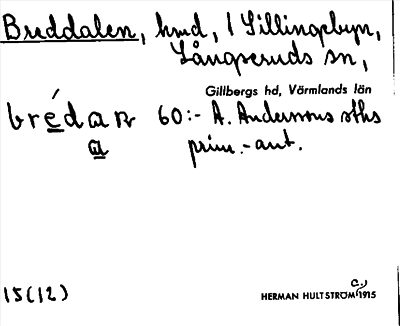 Breddalen, hmd, 1 Sillingebyn,
Långseruds sn,
Gillbergs hd, Värmlands län
brédan 60:- A. Anderssons sths
a prim.-ant.
15(12) HERMAN HULTSTRÖM 1915